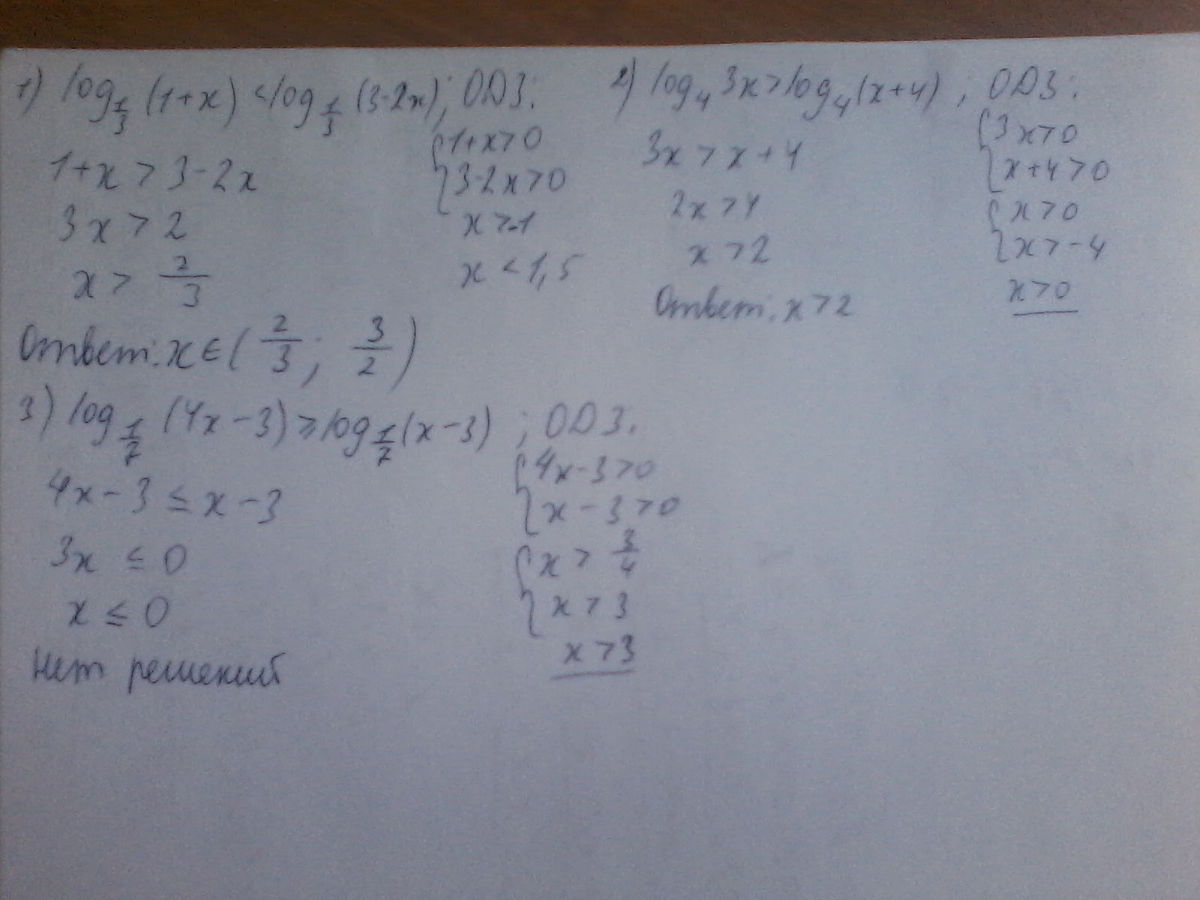 1) log_{1/3} (1+x) < log_{1/3} (3-2x); ОДЗ:
1+x > 3-2x
3x > 2
x > 2/3
{1+x>0
{3-2x>0
x>-1
x<1,5
Ответ: x∈(2/3; 3/2)
2) log_4 3x > log_4 (x+4); ОДЗ:
3x > x+4
2x > 4
x > 2
Ответ: x>2
{3x>0
{x+4>0
{x>0
{x>-4
x>0
3) log_{1/7} (4x-3) ≥ log_{1/7} (x-3); ОДЗ.
4x-3 ≤ x-3
3x ≤ 0
x ≤ 0
Нет решений
{4x-3>0
{x-3>0
{x > 3/4
{x > 3
x>3